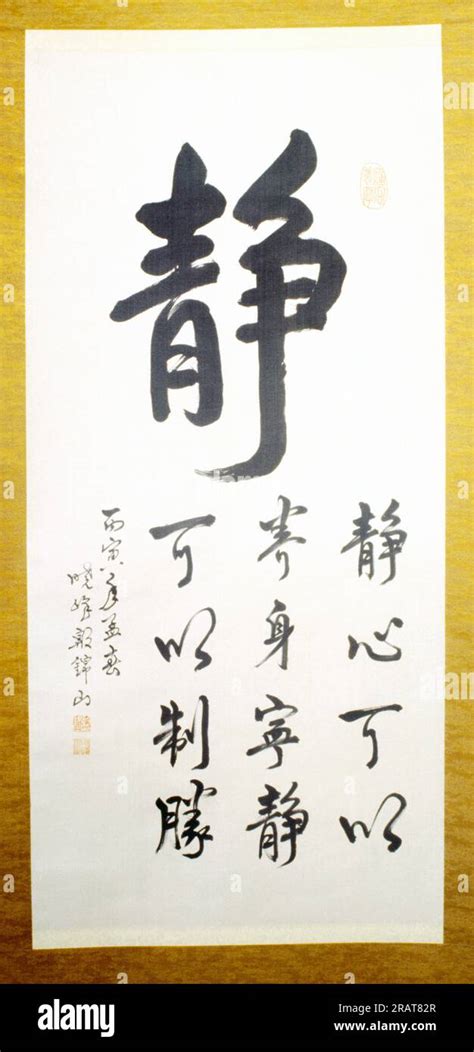 静
静心可以
养身寧静
可以制勝
丙寅年孟春
錦山
alamy
Image ID: 2RAT82R
www.alamy.com